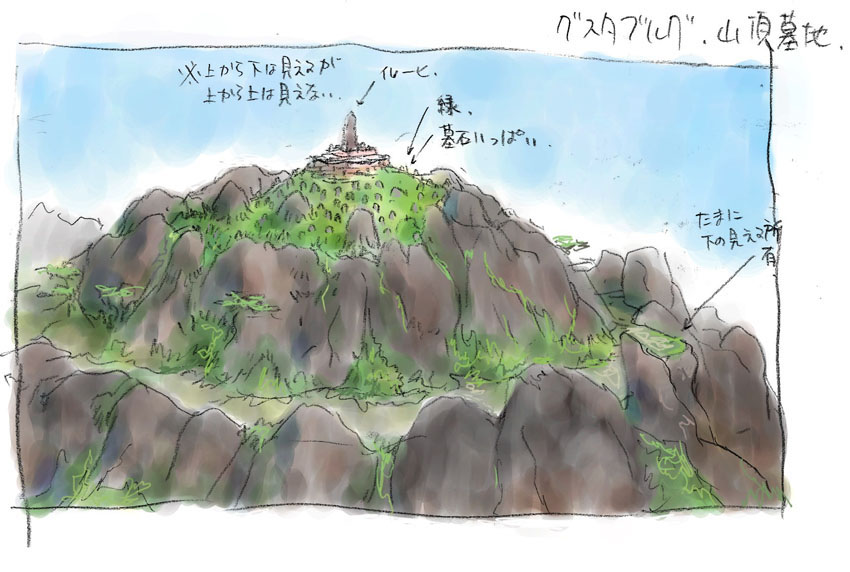 グスタブルグ、山頂墓地、
※上から下は見えるが
上から上は見えない、
緑、
墓石いっぱい、
たまに
下の見える所
有